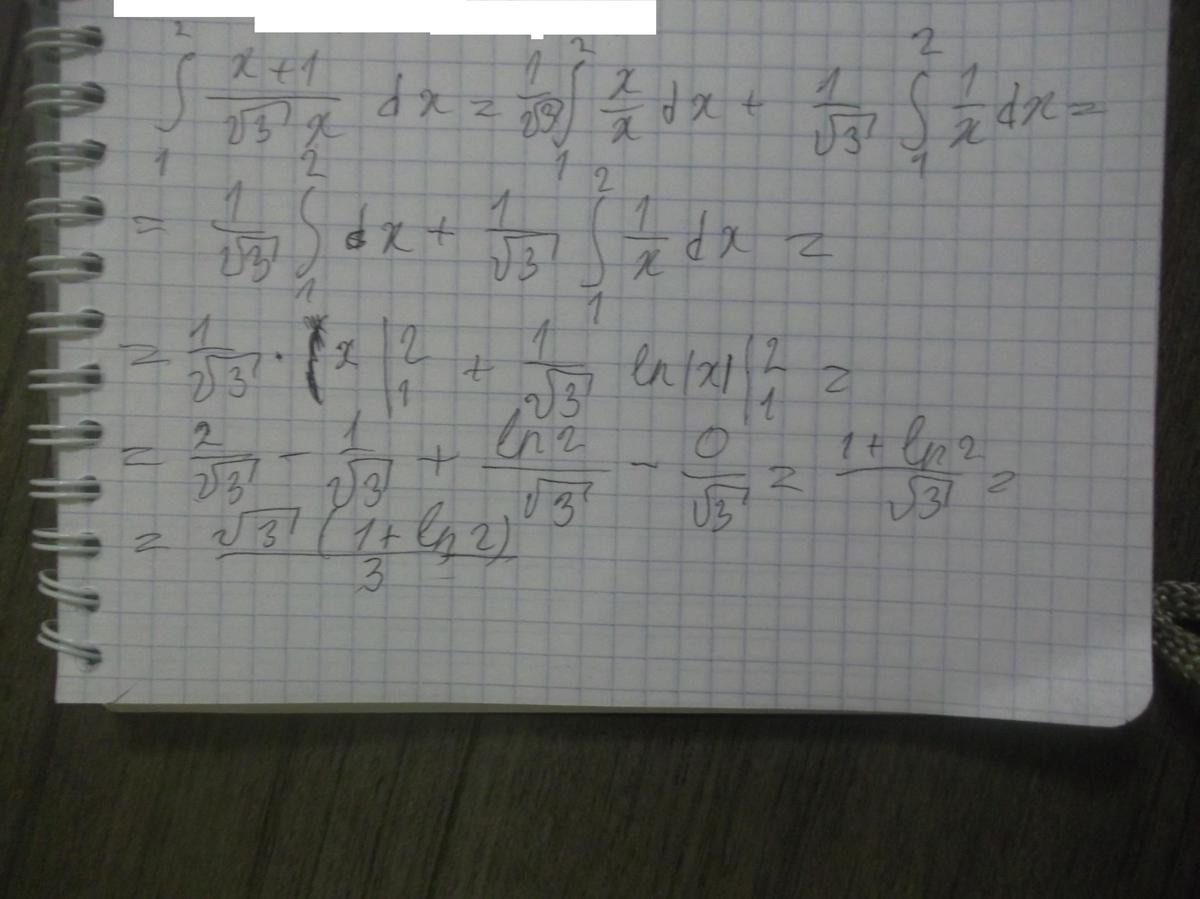 ∫₁² (x+1)/(√3 x) dx = 1/√3 ∫₁² x/x dx + 1/√3 ∫₁² 1/x dx =
= 1/√3 ∫₁² dx + 1/√3 ∫₁² 1/x dx =
= 1/√3 · x |₁² + 1/√3 ln|x| |₁² =
= 2/√3 - 1/√3 + ln2/√3 - 0/√3 = (1+ln2)/√3 =
= √3 (1+ln2)/3